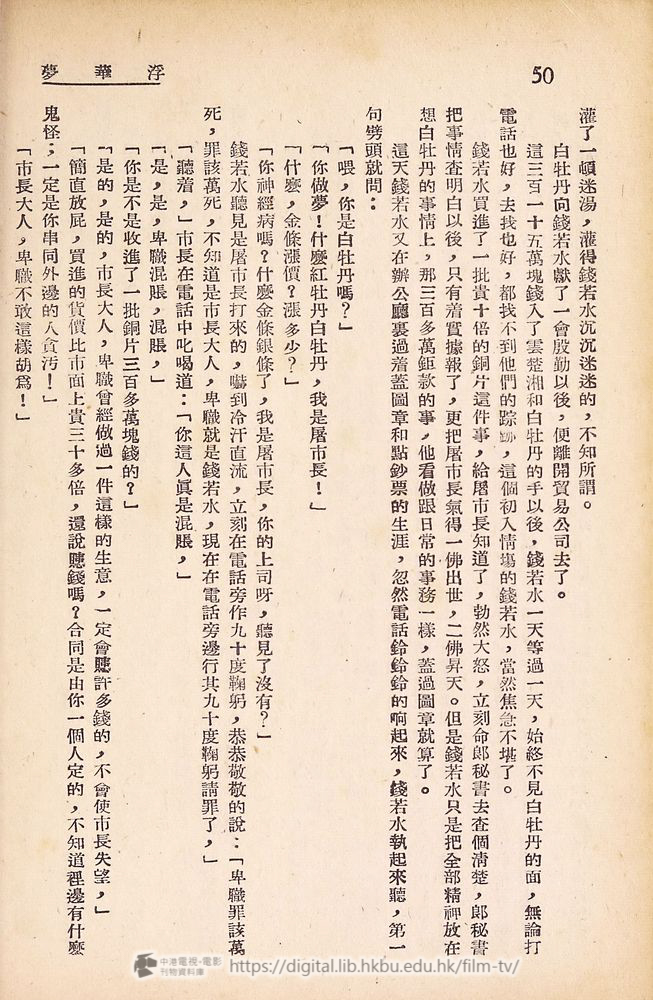 浮華夢
50
灌了一頓迷湯，灌得錢若水沉沉迷迷的，不知所謂。
白牡丹向錢若水獻了一會殷勤以後，便離開貿易公司去了。
這三百一十五萬塊錢入了雲楚湘和白牡丹的手以後，錢若水一天等過一天，始終不見白牡丹的面，無論打
電話也好，去我也好，都找不到他們的踪跡，這個初入情塲的錢若水，當然焦急不堪了。
錢若水買進了一批貴十倍的銅片這件事，給屠市長知道了，勃然大怒，立刻命郞秘書去查個清楚，郞秘書
把事情査明白以後，只有着實據報了，更把屠市長氣得一佛出世，二佛昇天。但是錢若水只是把全部精神放在
想白牡丹的事情上，那三百多萬鉅款的事，他看做跟日常的事務一樣，蓋過圖章就算了。
這天錢若水又在辦公廳裏過着蓋圖章和點鈔票的生涯，忽然電話鈴鈴鈴的响起來，錢若水執起來聽，第一
句劈頭就問：
「喂，你是白牡丹嗎？」
「你做夢！什麼紅牡丹白牡丹，我是屠市長！」
「什麼，金條漲價？漲多少？」
「你神經病嗎？什麼金條銀條了，我是屠市長，你的上司呀，聽見了沒有？」
錢若水聽見是屠市長打來的，嚇到冷汗直流，立刻在電話旁作九十度鞠躬，恭恭敬敬的說：「卑職罪該萬
死，罪該萬死，不知道是市長大人，卑職就是錢若水，現在在電話旁邊行其九十度鞠躬請罪了，」
「聽着，」市長在電話中叱喝道：「你這人眞是混賬，」
「是，是，卑職混賬，混賬，」
「你是不是收進了一批銅片三百多萬塊錢的？」
「是的，是的，市長大人，卑職曾經做過一件這樣的生意，一定會賺許多錢的，不會使市長失望，」
「簡直放屁，買進的貨價比市面上貴三十多倍，還說賺錢嗎？合同是由你一個人定的，不知道裡邊有什麼
鬼怪；一定是你串同外邊的人貪汚！」
「市長大人，卑職不敢這樣胡爲！」
中港電視・電影
刊物資料庫
https://digital.lib.hkbu.edu.hk/film-tv/